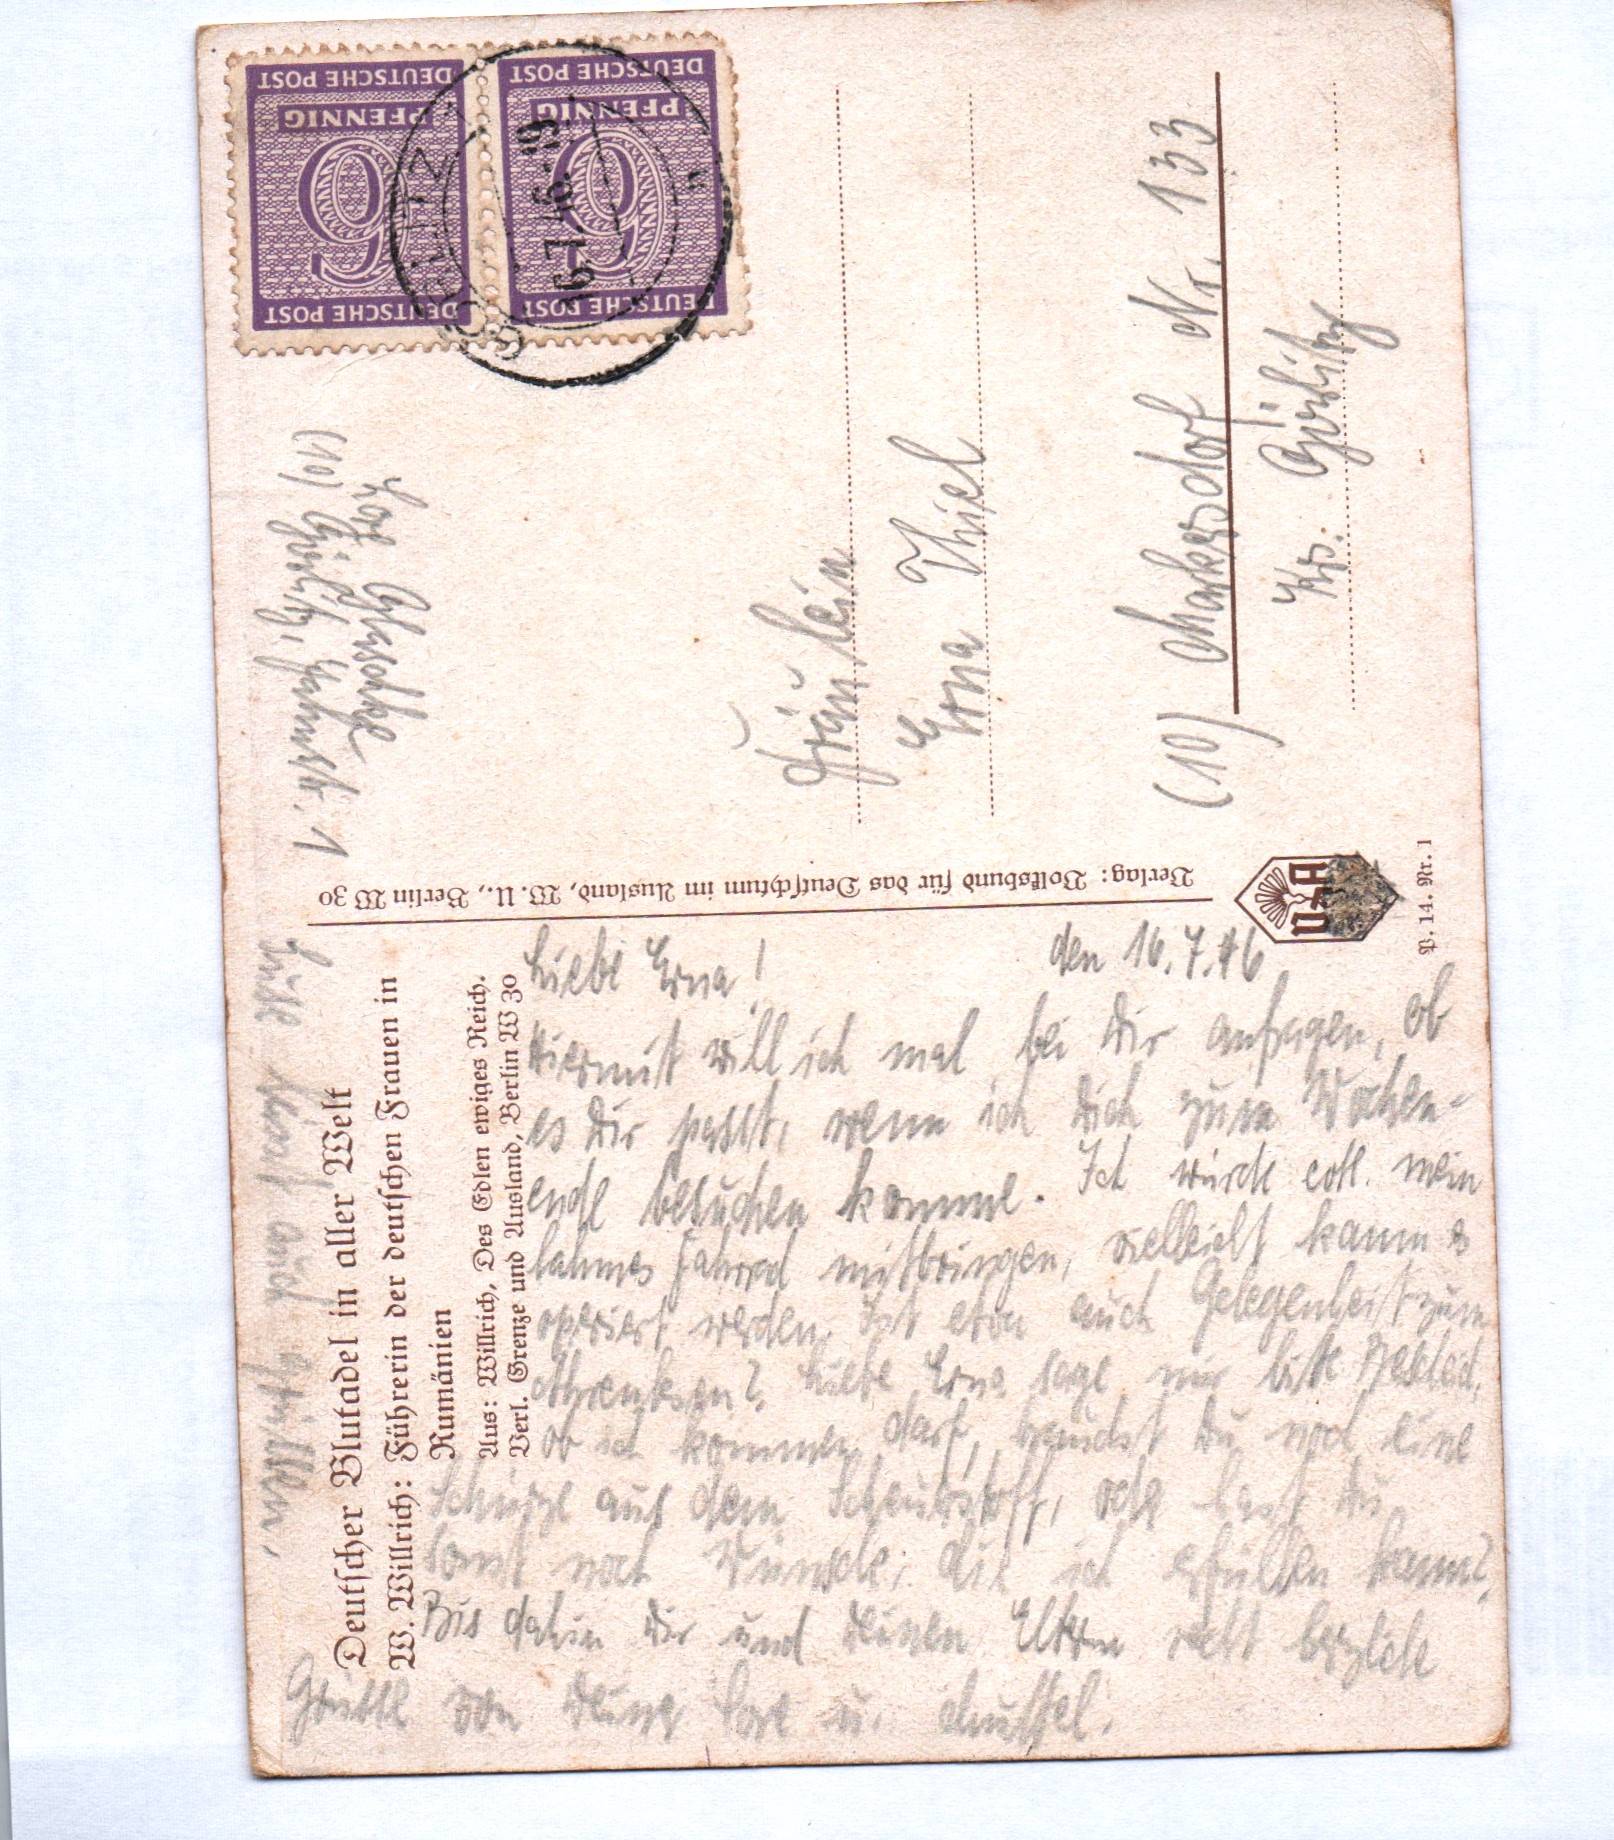 Deutscher Blutadel in aller Welt
W. Willrich: Führerin der deutschen Frauen in
Rumänien
Aus: Willrich, Des Edlen ewiges Reich.
Verl. Grenze und Ausland, Berlin W 30
Liebe Erna! den 16.7.46
Hiermit will ich mal bei Dir anfragen, ob
es Dir passt, wenn ich Dich zum Wochen-
ende besuchen komme. Ich würde evtl. mein
lahmes Fahrrad mitbringen, vielleicht kann es
operiert werden. Ist etwa auch Gelegenheit zum
Liebe Erna sage mir bitte Bescheid,
ob ich kommen darf, brauchst Du noch eine
Schürze aus dem Scheuerstoff, oder hast Du
sonst noch Wünsche, die ich erfüllen kann?
Bis dahin Dir und Deinen Eltern recht herzliche
Grüße von Deiner Lore u.
Verlag: Volksbund für das Deutschtum im Ausland, W. U., Berlin W 30
VDA
P. 14. Nr. 1
Lore Glaschke
(10) Görlitz, Jahnstr. 1
DEUTSCHE POST
6
PFENNIG
DEUTSCHE POST
DEUTSCHE POST
6
PFENNIG
DEUTSCHE POST
GÖRLITZ 1
19.7.46-19
Fräulein
Erna Thiel
(10) Markersdorf Nr. 133
Krs. Görlitz